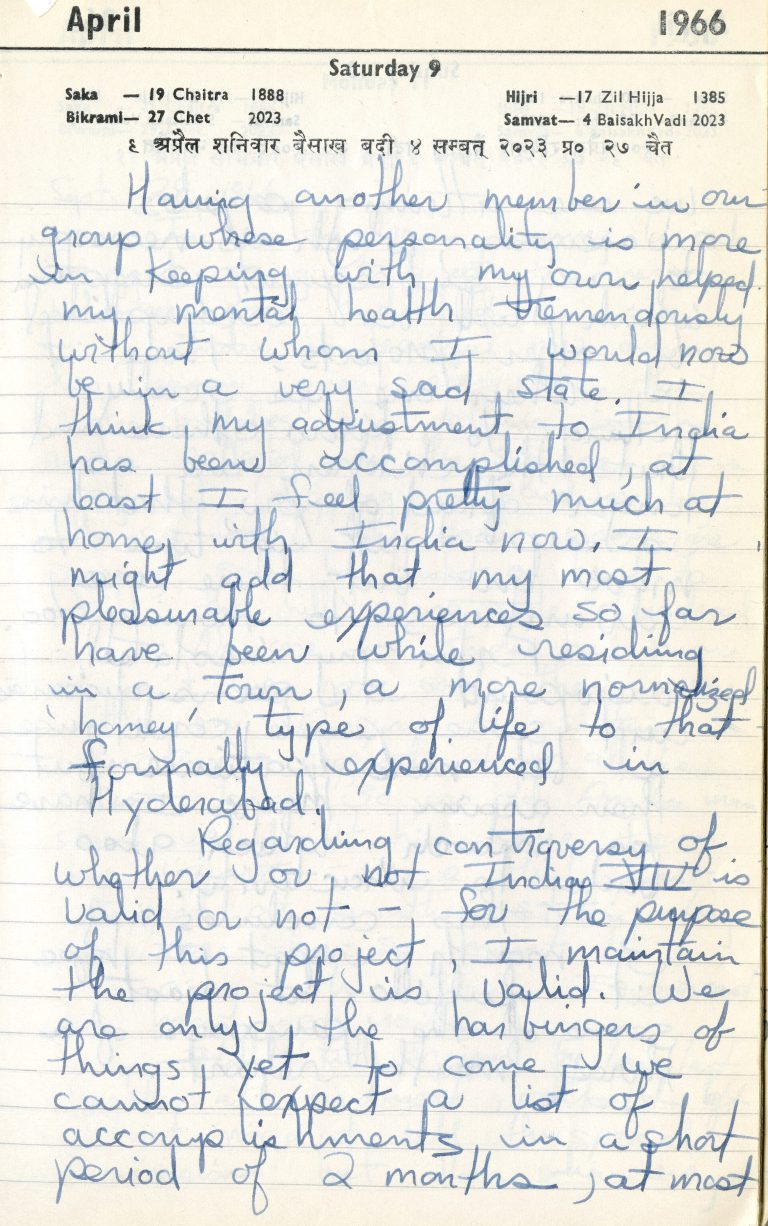 April 1966
Saturday 9
Saka — 19 Chaitra 1888 Hijri —17 Zil Hijja 1385
Bikrami— 27 Chet 2023 Samvat— 4 BaisakhVadi 2023
९ अप्रैल शनिवार बैसाख बदी ४ सम्बत् २०२३ प्र० २७ चैत
Having another member in our
group whose personality is more
in keeping with my own helped
my mental health tremendously
without whom I would now
be in a very sad state. I
think my adjustment to India
has been accomplished, at
least I feel pretty much at
home with India now. I
might add that my most
pleasurable experiences so far
have been while residing
in a town, a more normalized
'homey' type of life to that
formally experienced in
Hyderabad.
Regarding controversy of
whether or not India XIV is
valid or not - for the purpose
of this project, I maintain
the project is valid. We
are only the harbingers of
things yet to come, we
cannot expect a list of
accomplishments in a short
period of 2 months, at most